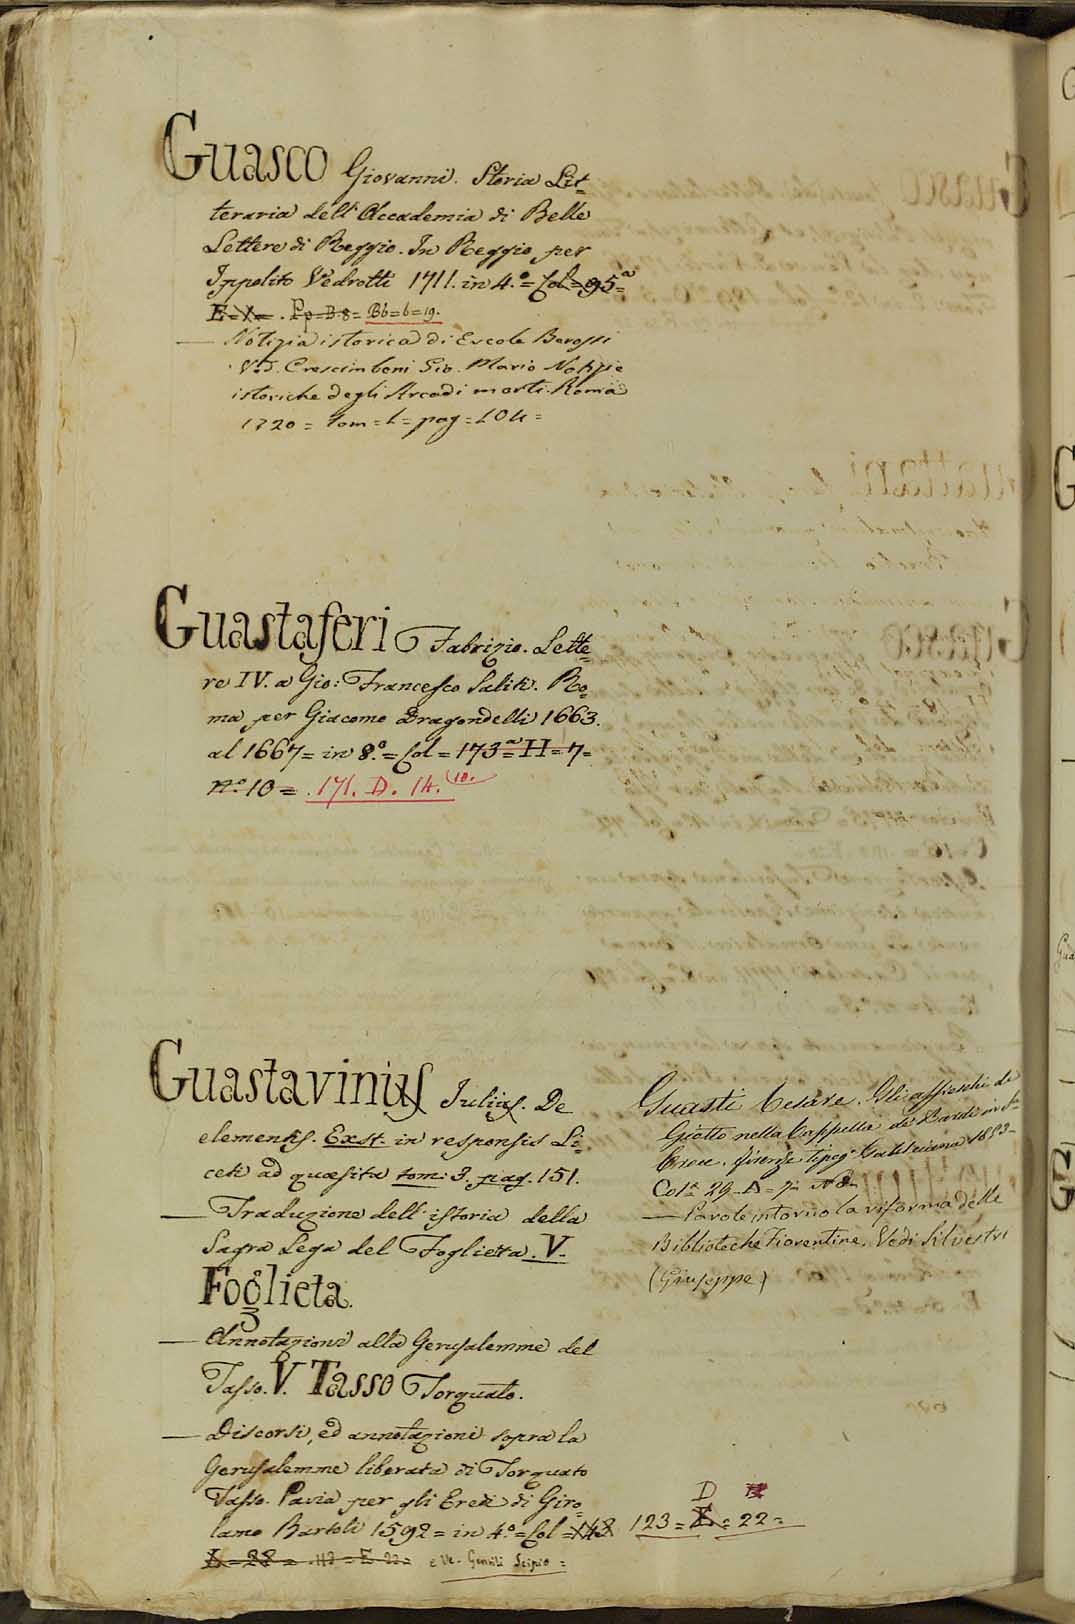 Guasco Giovanni. Storia Let=
teraria dell' Accademia di Belle
Lettere di Reggio. In Reggio per
Ippolito Vedrotti 1711. in 4.º = Col = 95=ª
Bb=b=19.
— Notizia istorica di Ercole
Ved. Crescimbeni Gio. Mario Notizie
istoriche degli Arcadi morti. Roma
1720 = Tom = 1 = pag = 104 =
Guastaferi Fabrizio. Lette=
re IV. a Gio: Francesco Saliti. Ro=
ma per Giacomo Dragondelli 1663.
al 1667 = in 8.º = Col = 173=ª H = 7=
nº 10 = . 171. D. 14. (10.
Guastavinius Julius. De
elementis. Exst. in responsis Li=
ceti ad quæsita tom: 3. pag. 151.
— Traduzione dell' istoria della
Sagra Lega del Foglieta. V.
Foglieta.
— Annotazioni alla Gerusalemme del
Tasso. V. Tasso Torquato.
— Discorsi, ed annotazioni sopra la
Gerusalemme liberata di Torquato
Tasso. Pavia per gli Eredi di Giro=
lamo Bartoli 1592 = in 4.º = Col = 148 123 = E = 22 =
D
E = 28 = . 113 = E 22 = e Ve. Gentili Scipio =
Guasti Cesare. Gli affreschi di
Giotto nella Cappella de' Bardi in Sa
Croce. Firenze tipog. Galileiana 1853 -
Colª. 29 - D = 7
— Parole intorno la riforma delle
Biblioteche Fiorentine. Vedi Silvestri
(Giuseppe)